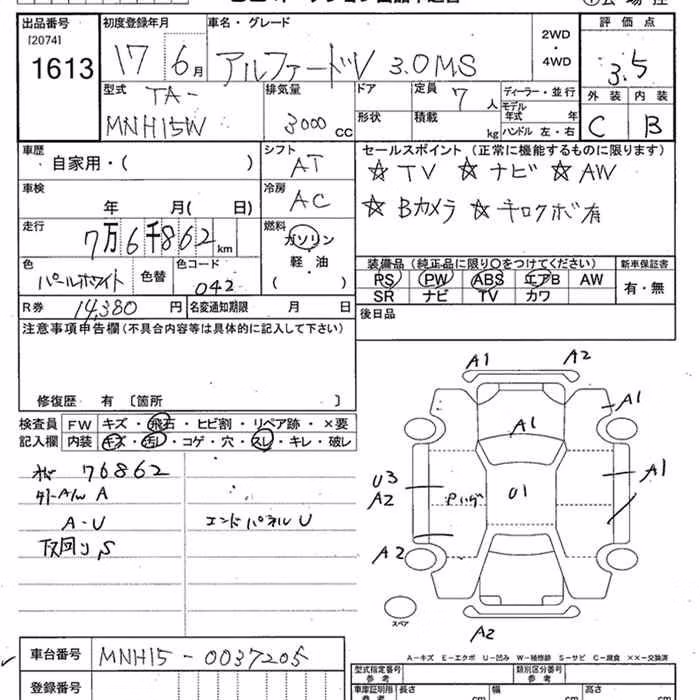 出品番号
[2074]
1613
初度登録年月
17 6月
車名・グレード
アルファードV 3.0MS
2WD
・
4WD
評価点
3.5
外装 内装
C B
型式
TA-
MNH15W
排気量
3000 CC
ドア
形状
定員
7人
積載
kg
ディーラー・並行
モデル
年式 年
ハンドル 左・右
車歴
自家用・( )
シフト
AT
セールスポイント (正常に機能するものに限ります)
☆TV ☆ナビ ☆AW
☆Bカメラ ☆キロクボ有
車検
年 月( 日)
冷房
AC
走行
7万6千862km
燃料
ガソリン
軽・油
( )
色
パールホワイト
色替
色コード
042
装備品 (純正品に限り○をつけてください)
RS PW ABS エアB AW
SR ナビ TV カワ
新車保証書
有・無
R券 14,380円
名変通知期限 月 日
後日品
注意事項申告欄 (不具合内容等は具体的に記入して下さい)
修復歴 有 〔箇所 〕
検査員
記入欄
FW キズ・飛石・ヒビ割・リペア跡・×要
内装 キズ・汚レ・コゲ・穴・スレ・キレ・破レ
76862
A
A-U
エンドパネルU
下回りS
A1
A2
A1
A1
U3
A2
U1
A1
A2
A2
スペア
A-キズ E-エクボ U-凹み W-補修跡 S-サビ C-腐食 ××-交換済
車台番号
MNH15-0037205
登録番号
型式指定番号
参考
類別区分番号
参考
車庫証明用
参考
長さ cm
幅 cm
高さ cm